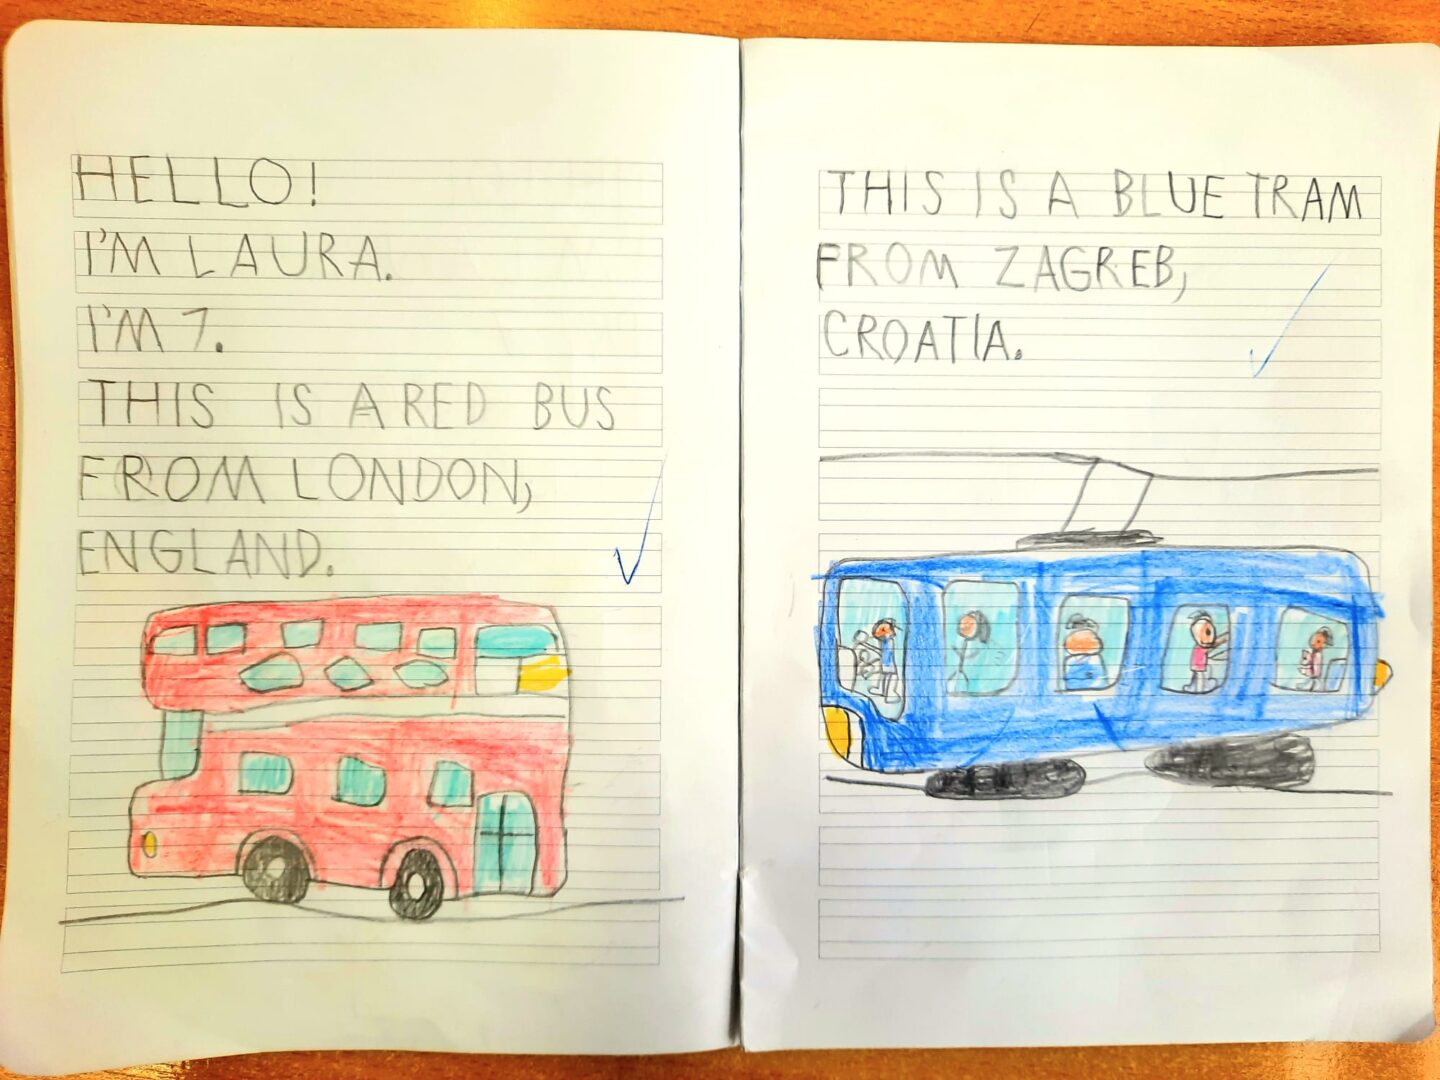 HELLO!
I'M LAURA.
I'M 7.
THIS IS A RED BUS
FROM LONDON,
ENGLAND.
THIS IS A BLUE TRAM
FROM ZAGREB,
CROATIA.